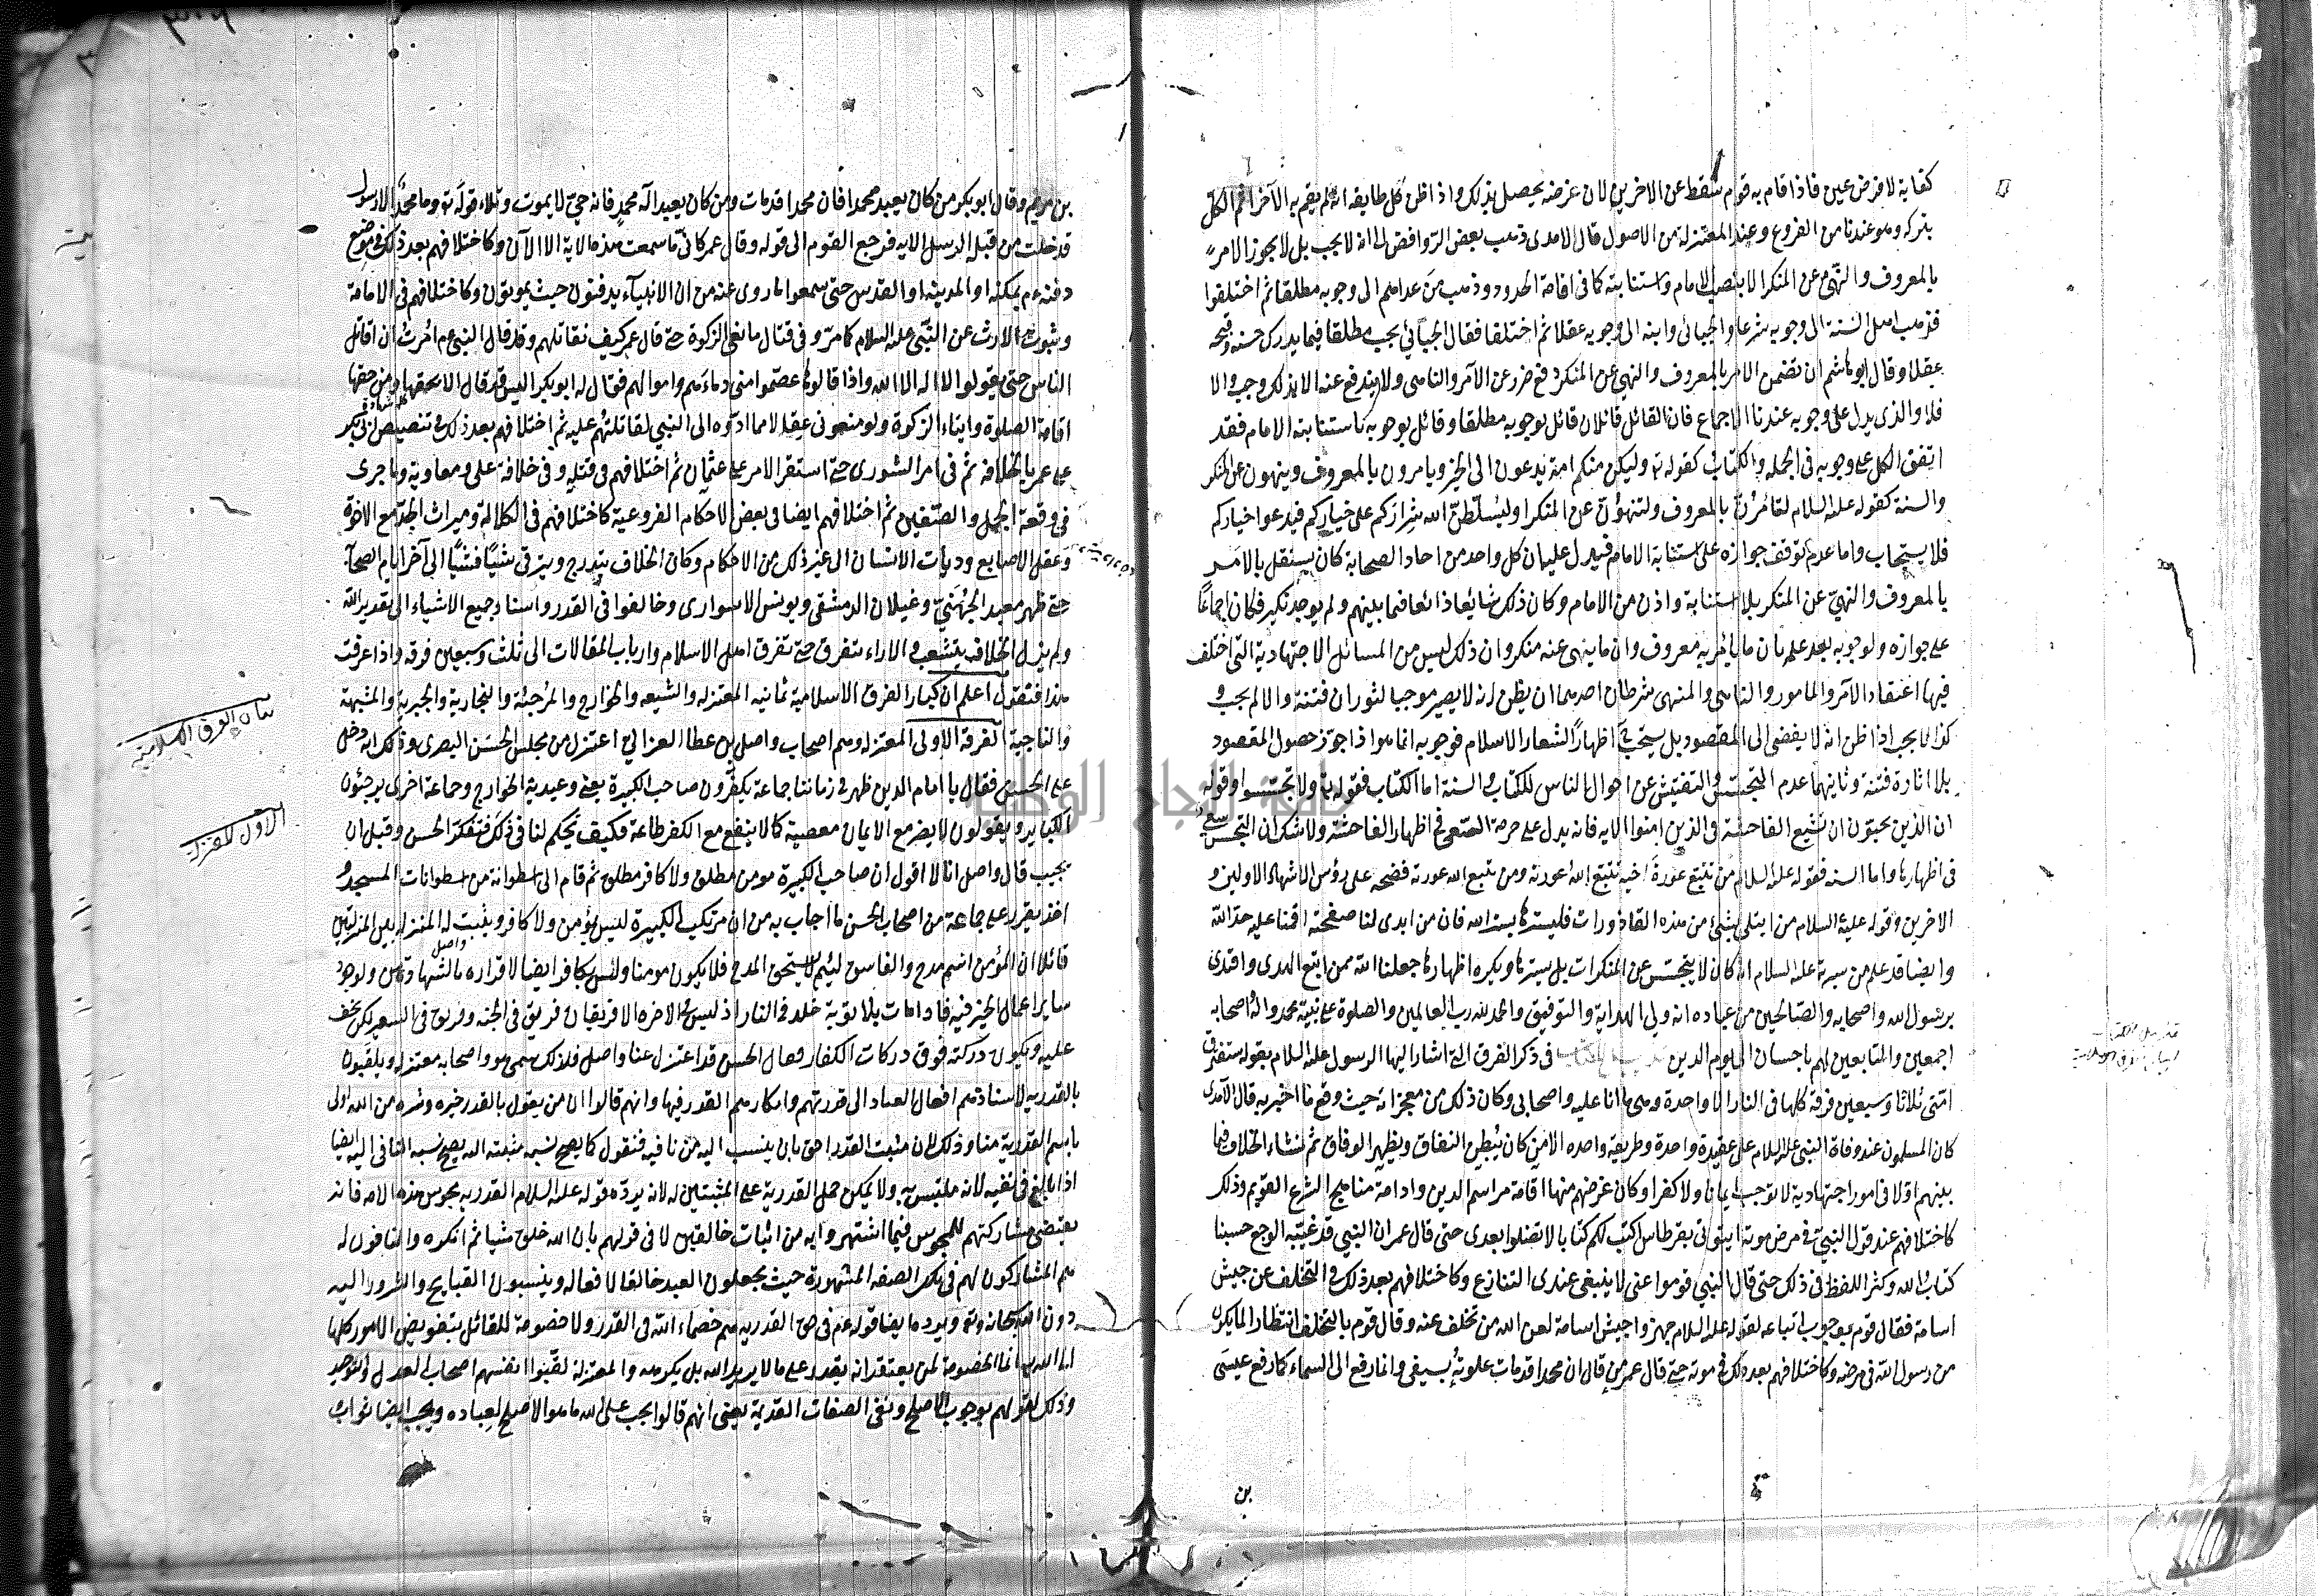 كفاية لا فرض عين فاذا قام به قوم سقط عن الاخرين لان غرضه يحصل بذلك واذا ظن كل طايفه انه لم يقم به الآخر اثم الكل
بتركه وهو عندنا من الفروع وعند المعتزلة من الاصول قال الامدى ذهب بعض الروافض الى انه لا يجب بل لا يجوز الامر
بالمعروف والنهى عن المنكر الا بنصب الامام واستنابته كما فى اقامة الحدود وذهب من عداهم الى وجوبه مطلقا ثم اختلفوا
فذهب اهل السنة الى وجوبه شرعا والجبائى وابنه الى وجوبه عقلا ثم اختلفا فقال الجبائى يجب مطلقا فيما يدرك حسنه وقبحه
عقلا وقال ابو هاشم ان تضمن الامر بالمعروف والنهى عن المنكر دفع ضرر عن الآمر والناهى ولا يندفع عنه الا بذلك وجب والا
فلا والذى يدل على وجوبه عندنا الاجماع فان القائل قائلان قائل بوجوبه مطلقا وقائل بوجوبه باستنابته الامام فقد
اتفق الكل على وجوبه فى الجمله والكتاب كقوله تع وليكن منكم امة يدعون الى الخير ويامرون بالمعروف وينهون عن المنكر
والسنة كقوله عليه السلام لتامرُنّ بالمعروف ولتنهوُنّ عن المنكر او ليُسلّطنّ الله شراركم على خياركم فيدعوا خياركم
فلا يستجاب واما عدم توقف جوازه على استنابة الامام فيدل عليه ان كل واحد من احاد الصحابة كان يستقل بالامر
بالمعروف والنهى عن المنكر بلا استنابة واذن من الامام وكان ذلك شايعا ذائعا فيما بينهم ولم يوجد نكير فكان اجماعًا
على جوازه ولوجوبه بعد علمه بان ما يامُر به معروف وان ما ينهى عنه منكر وان ذلك ليس من المسائل الاجتهادية التى اختلف
فيها اعتقاد الآمر والمامور والناهى والمنهى شرطان احدهما ان يظن انه لا يصير موجبا لثوران فتنة والا لم يجب و
كذا لا يجب اذا ظن انه لا يفضى الى المقصود بل يستحب اظهارًا لشعار الاسلام فوجوبه انما هو اذا جوّز حصول المقصود
بلا اثارة فتنة وثانيهما عدم التجسّس والتفتيش عن احوال الناس للكتاب والسنة اما الكتاب فقوله تع ولا تجسّسوا وقوله
ان الذين يحبون ان تشيع الفاحشة فى الذين امنوا الايه فانه يدل على حرمة السعى فى اظهار الفاحشة ولا شك ان التجسس سعى
فى اظهارها واما السنه فقوله عليه السلام من تتبّع عورةَ اخيه تتبّع اللهُ عورته ومن تتبع الله عورته فضحه على رؤس الاشهاد الاولين و
الاخرين وقوله عليه السلام من ابتلى بشئ من هذه القاذورات فليسترها بستر الله فان من ابدى لنا صفحته اقمنا عليه حدّ الله
وايضا قد علم من سيرته عليه السلام انه كان لا يتجسّس عن المنكرات بل يسترها ويكره اظهارها جعلنا الله ممن اتبع الهدى واقتدى
برسول الله واصحابه والصّالحين من عباده انه ولى الهداية والتوفيق والحمد لله رب العالمين والصلوة على نبيّه محمد واله واصحابه
اجمعين والتابعين لهم باحسان الى يوم الدين فى ذكر الفرق التى اشار اليها الرسول عليه السلام بقوله ستفترق
امّتى ثلاثا وسبعين فرقة كلها فى النار الا واحدة وهى ما انا عليه واصحابى وكان ذلك من معجزاته حيث وقع ما اخبر به قال الآمدى
كان المسلمون عند وفاة النبى عليه السلام على عقيدة واحدة وطريقة واحده الا من كان يُبطِن النفاق ويظهر الوفاق ثم نشاء الخلاف فيما
بينهم اوّلا فى امور اجتهادية لا توجب ايمانا ولا كفرا وكان غرضهم منها اقامة مراسم الدين وادامة مناهج الشرع القويم وذلك
كاختلافهم عند قول النبىّ فى مرض موته ايتونى بقرطاس اكتب لكم كتابا لا تضلوا بعدى حتى قال عمر ان النبى قد غلبه الوجع حسبنا
كتاب الله وكثر اللفظ فى ذلك حتى قال النبى قوموا عنى لا ينبغى عندى التنازع وكاختلافهم بعد ذلك فى التخلف عن جيش
اسامة فقال قوم بوجوب اتباعه لقوله عليه السلام جهزوا جيش اسامة لعن الله من تخلف عنه وقال قوم بالتخلف انتظارا لما يكون
من رسول الله فى مرضه وكاختلافهم بعد ذلك فى موته حتى قال عمر من قال ان محمدا قد مات علوته بسيفى وانما رفع الى السماء كما رفع عيسى
بن
بن مريم وقال ابو بكر من كان يعبد محمدا فان محمدا قد مات ومن كان يعبد اله محمد فانه حىّ لا يموت وتلاء قوله تع وما محمدٌ الا رسول
قد خلت من قبله الرسل الايه فرجع القوم الى قوله وقال عمر كانّى ما سمعت هذه الاية الا الآن وكاختلافهم بعد ذلك فى موضع
دفنه عم بمكة او المدينه او القدس حتى سمعوا ما روى عنه من ان الانبياء يدفنون حيث يموتون وكاختلافهم فى الامامة
وثبوت الارث عن النبّى عليه السلام كما مرّ وفى قتال مانعى الزكوة حتى قال عمر كيف نقاتلهم وقد قال النبى عم امُرتُ ان اقاتل
الناس حتى يقولوا لا اله الا الله واذا قالوها عصَموا منى دماءهم واموالهم فقال له ابو بكر اليس قد قال الا بحقها ومن حقها
اقامة الصلوة وايتاء الزكوة ولو منعونى عقالا مما ادّوه الى النبى لقاتلتُهم عليه ثم اختلافهم بعد ذلك فى تنصيص ابى بكر
على عمر بالخلافه ثم فى امر الشورى حتى استقر الامر على عثمان ثم اختلافهم فى قتله وفى خلافة على ومعاوية وما جرى
فى وقعة الجمل والصفين ثم اختلافهم ايضا فى بعض الاحكام الفروعية كاختلافهم فى الكلالة وميراث الجدّ مع الاخوة
وعقل الاصابع وديات الاسنان الى غير ذلك من الاحكام وكان الخلاف يتدرج ويترقى شيًا فشيًا الى آخر ايام الصحابة
حتى ظهر معبد الجُهَنىّ وغيلان الدمشقى ويونس الاسوارى وخالفوا فى القدر واسناد جميع الاشياء الى تقدير الله
ولم يزل الخلاف يتشعب والاراء تتفرق حتى تفرق اهل الاسلام وارباب المقالات الى ثلث وسبعين فرقه واذا عرفت
هذا فنقول اعلم ان كبار الفرق الاسلامية ثمانيه المعتزله والشيعه والخوارج والمرجئة والنجارية والجبرية والمشبهة
والناجية الفرقة الاولى المعتزله وهم اصحاب واصل بن عطا الغزالى اعتزل من مجلس الحسَن البصرى وذلك انه دخل
على الحسن فقال يا امام الدين ظهر فى زماننا جماعة يكفّرون صاحب الكبيرة يعنى وعيدية الخوارج وجماعة اخرى يرجئون
الكباير ويقولون لا يضر مع الايمان معصية كما لا ينفع مع الكفر طاعة فكيف تحكم لنا فى ذلك فتفكر الحسن وقبل ان
يجيب قال واصل انا لا اقول ان صاحب الكبيرة مومن مطلق ولا كافر مطلق ثم قام الى اسطوانة من اسطوانات المسجد و
اخذ يقرر على جماعة من اصحاب الحسن ما اجاب به من ان مرتكب الكبيرة ليس بمؤمن ولا كافر ويثبت له المنزله بين المنزلتين
قائلا ان المؤمن اسم مدح والفاسق ليثم لا يستحق المدح فلا يكون مومنا وليس بكافر ايضا لاقراره بالشهادتين ولوجود
ساير اعمال الخير فيه فاذا مات بلا توبة خلد فى النار اذ ليس فى الاخره الا فريقان فريق فى الجنه وفريق فى السعير لكن يخفف
عليه ويكون دركته فوق دركات الكفار فقال الحسن قد اعتزل عنا واصل فلذلك سمى هو واصحابه معتزله ويلقبون
بالقدريه لاسنادهم افعال العباد الى قدرتهم وانكارهم القدر فيها وانهم قالوا ان من يقول بالقدر خيره وشره من الله اولى
باسم القدرية منا وذلك لان مثبت القدر احق بان ينسب اليه من نافيه فنقول كما يصح نسبة مثبته اليه يصح نسبه النافى اليه ايضا
اذا بالغ فى نفيه لانه ملتبس به ولا يمكن حمل القدرية على المثبتين له لانه يردّه قوله عليه السلام القدريه مجوس هذه الامه فانه
يقتضى مشاركتهم للمجوس فيما اشتهروا به من اثبات خالقين لا فى قولهم بان الله خلق شيا ثم انكره والنافون له
هم المشاركون لهم فى تلك الصفه المشهورة حيث يجعلون العبد خالقا لافعاله وينسبون القبايح والشرور اليه
دون الله سبحانه وتع ويرد ما ايضا قوله عم فى حق القدريه هم خصماء الله فى القدر ولا خصومة للقائل بتفويض الامور كلها
انما الخصومة لمن يعتقد انه يقدر على ما لا يريد الله بل يكرهه والمعتزلة لقّبوا انفسهم اصحاب العدل والتوحيد
وذلك لقولهم بوجوب الاصلح ونفى الصفات القديمة يعنى انهم قالوا يجب على الله ما هو الاصلح لعباده ويجب ايضا ثواب
بيان الفرق الاسلامية
الاول المعتزلة